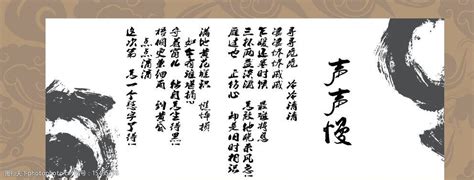 声声慢
寻寻觅觅 冷冷清清
凄凄惨惨戚戚
乍暖还时候 最难将息
三杯两盏淡酒 怎敌他晚来风急
雁过也 正伤心 却是旧时相识
满地黄花堆积 憔悴损
如今有谁堪摘
守着窗儿 独自怎生得黑
梧桐更兼细雨 到黄昏
点点滴滴
这次第 怎一个愁字了得